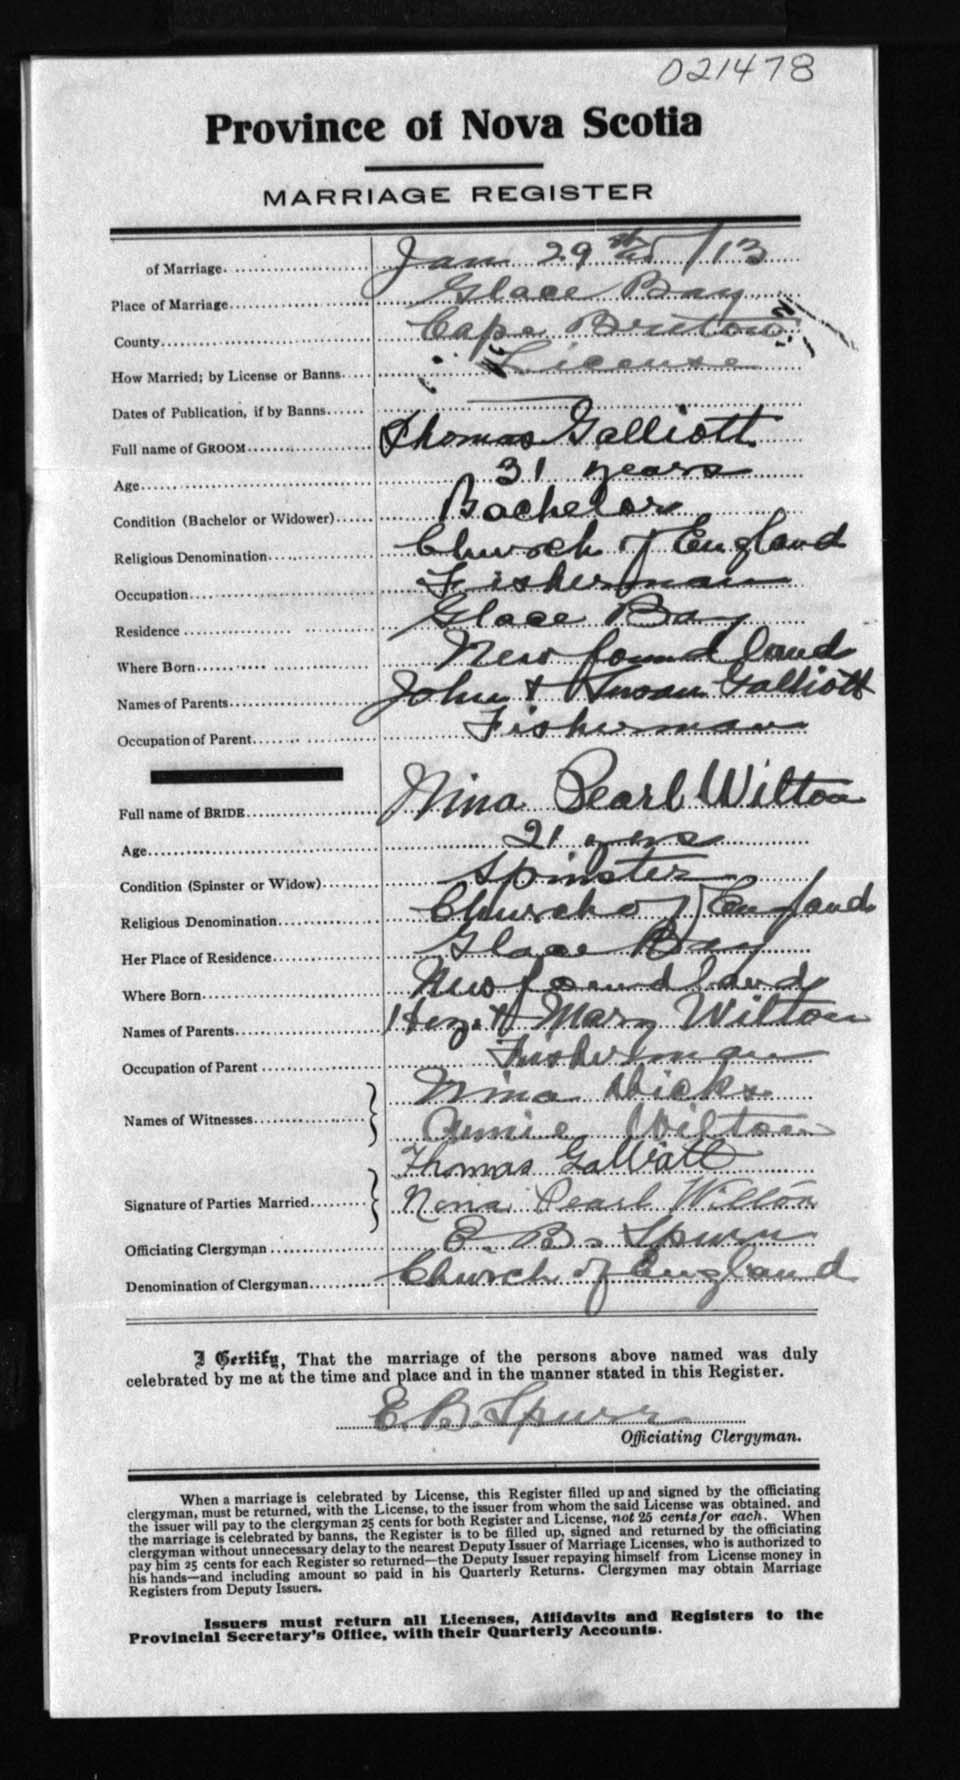 021478
Province of Nova Scotia
MARRIAGE REGISTER
of Marriage. Jan 29 /13
Place of Marriage Glace Bay
County Cape Breton
How Married; by License or Banns License
Dates of Publication, if by Banns
Full name of GROOM Thomas Galliott
Age 31 years
Condition (Bachelor or Widower) Bachelor
Religious Denomination Church of England
Occupation Fisherman
Residence Glace Bay
Where Born Newfoundland
Names of Parents John & Susan Galliott
Occupation of Parent Fisherman
Full name of BRIDE Nina Pearl Wilton
Age 21 years
Condition (Spinster or Widow) Spinster
Religious Denomination Church of England
Her Place of Residence Glace Bay
Where Born Newfoundland
Names of Parents Hez. & Mary Wilton
Occupation of Parent Fisherman
Names of Witnesses Nina Hicks
Annie Wilton
Signature of Parties Married Thomas Galliott
Nina Pearl Wilton
Officiating Clergyman E. B. Spurr
Denomination of Clergyman Church of England
I Certify, That the marriage of the persons above named was duly
celebrated by me at the time and place and in the manner stated in this Register.
E. B. Spurr
Officiating Clergyman.
When a marriage is celebrated by License, this Register filled up and signed by the officiating
clergyman, must be returned, with the License, to the issuer from whom the said License was obtained, and
the issuer will pay to the clergyman 25 cents for both Register and License, not 25 cents for each. When
the marriage is celebrated by banns, the Register is to be filled up, signed and returned by the officiating
clergyman without unnecessary delay to the nearest Deputy Issuer of Marriage Licenses, who is authorized to
pay him 25 cents for each Register so returned—the Deputy Issuer repaying himself from License money in
his hands—and including amount so paid in his Quarterly Returns. Clergymen may obtain Marriage
Registers from Deputy Issuers.
Issuers must return all Licenses, Affidavits and Registers to the
Provincial Secretary's Office, with their Quarterly Accounts.